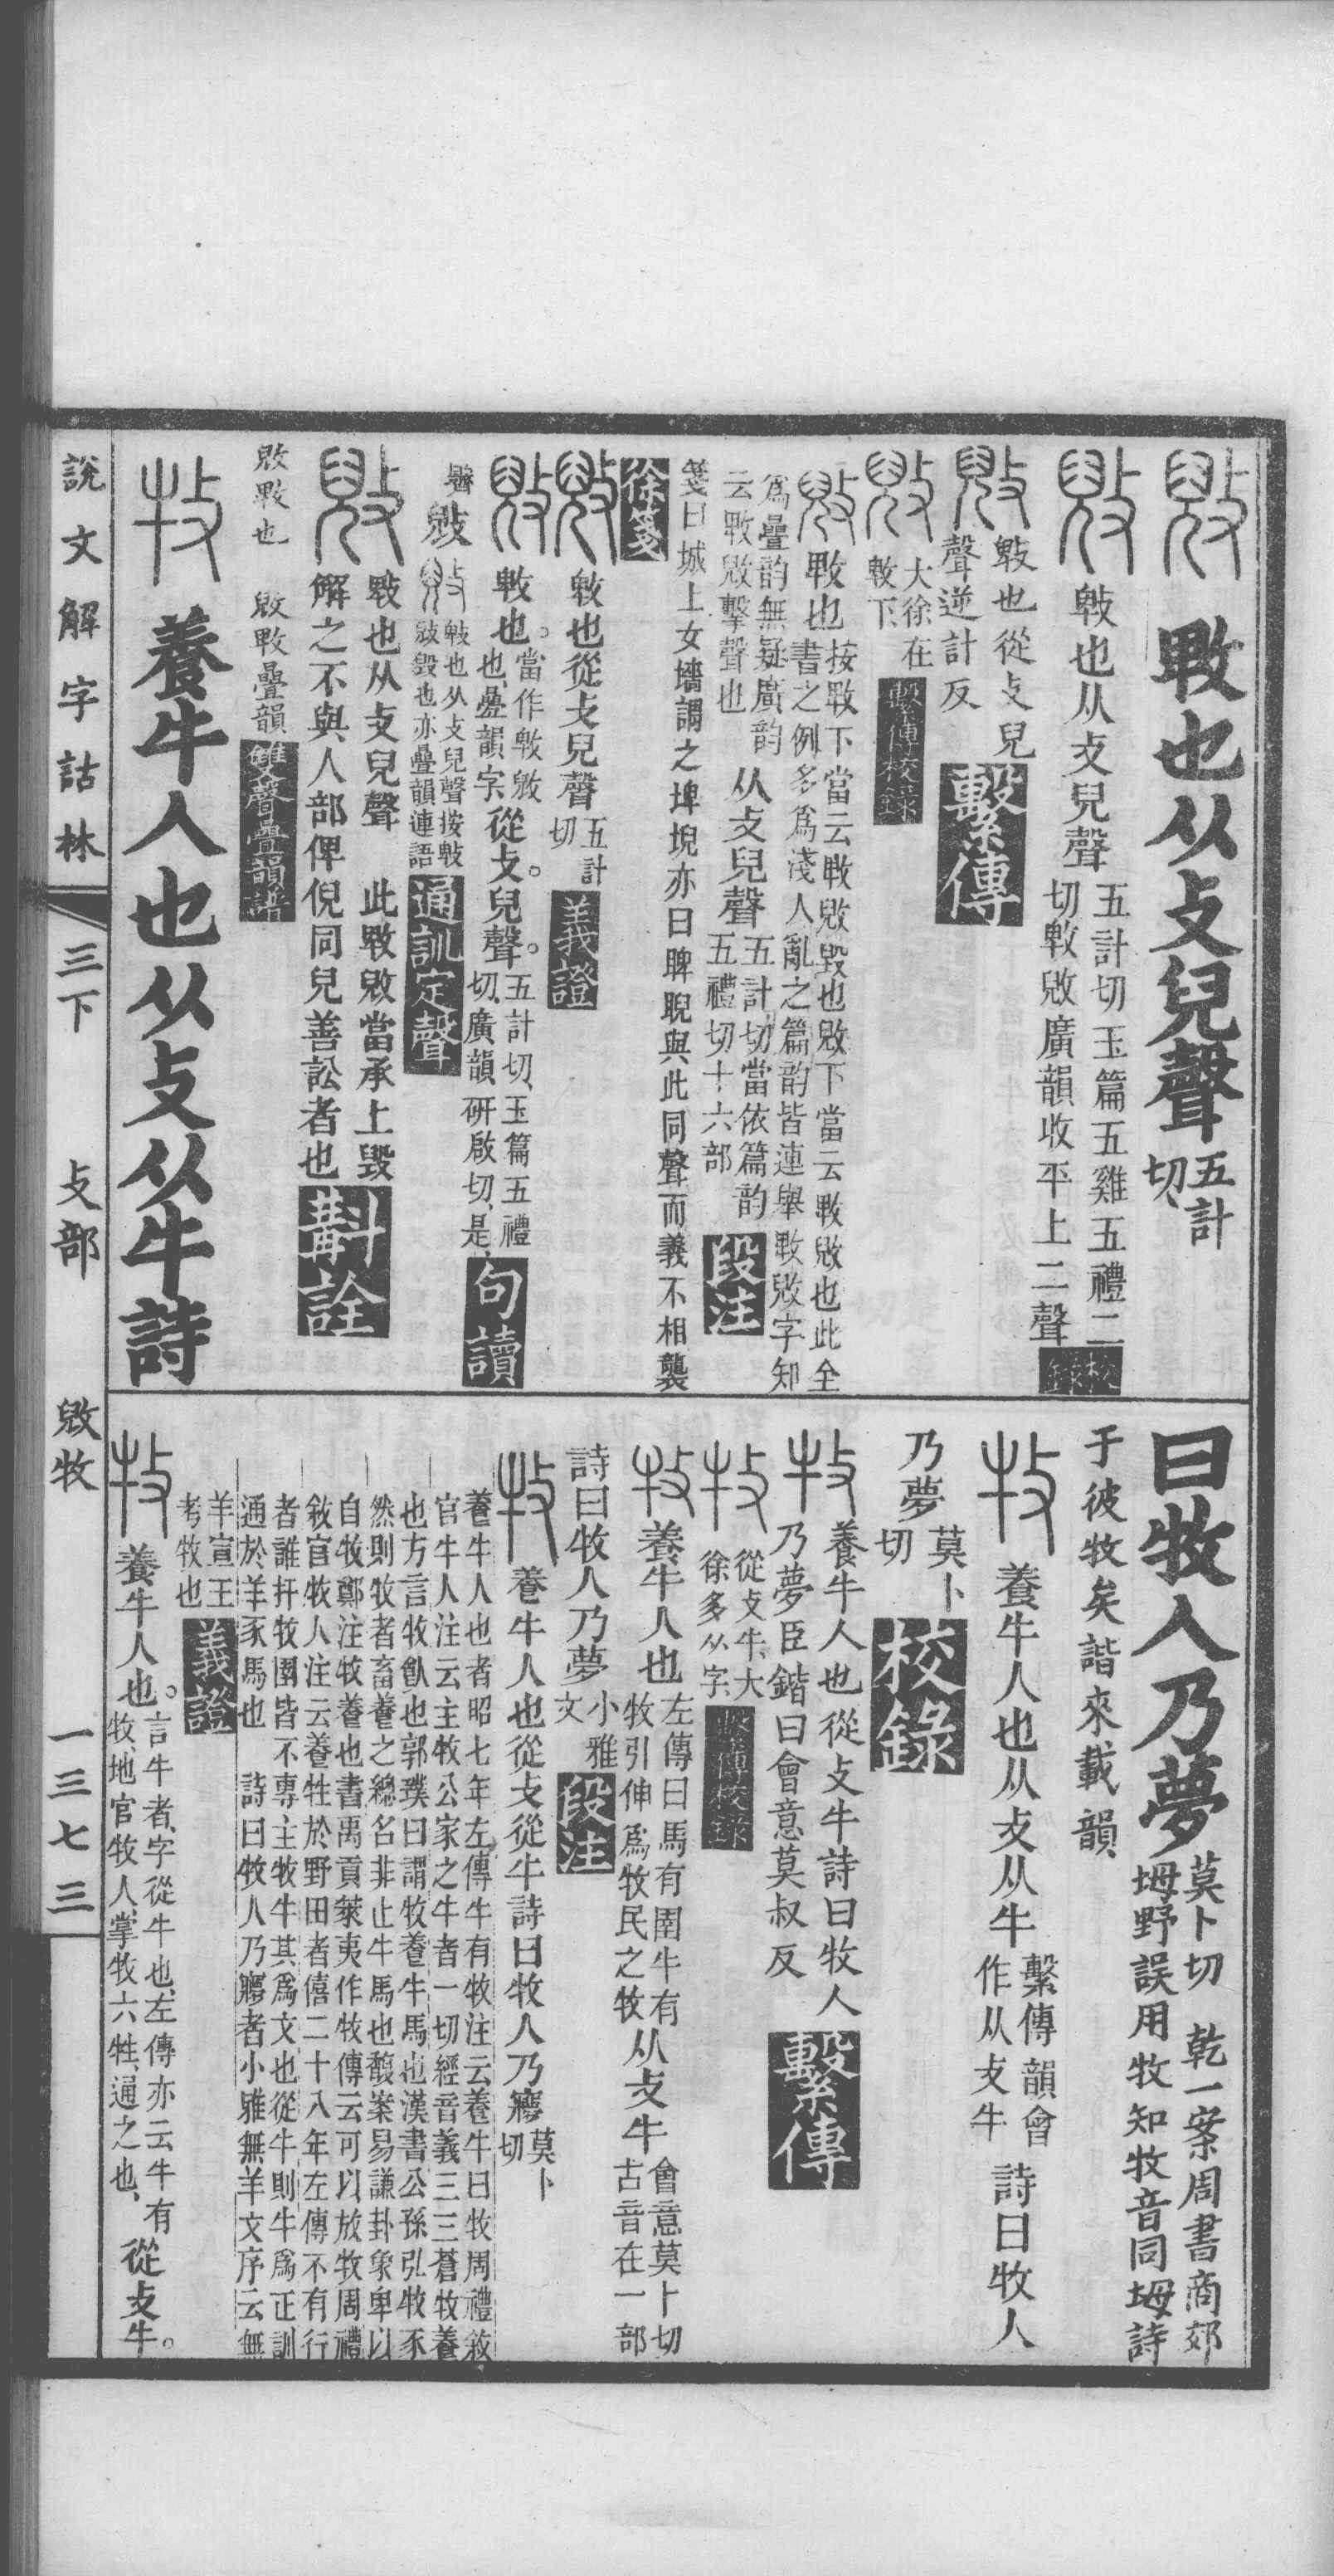 敡也从攴兒聲五計切
敤也从攴兒聲五計切玉篇五雞五禮二
切敤敡廣韻收平上二聲校錄
敤也從攴兒
聲逆計反繫傳
大徐在
敤下繫傳校錄
敤也按敤下當云敤敡毀也敡下當云敤敡也此全
書之例多爲淺人亂之篇韵皆連舉敤敡字知
爲疊韵無疑廣韵
云敤敡擊聲也从攴兒聲五計切當依篇韵
五禮切十六部段注
箋曰城上女墻謂之埤堄亦曰睥睨與此同聲而義不相襲
徐箋
敤也從攴兒聲五計
切義證
敤也當作敤敡
也疊韻字從攴兒聲五計切玉篇五禮
切廣韻研啟切是句讀
敤也从攴兒聲按敤
毀也亦疊韻連語通訓定聲
敤也从攴兒聲 此敤敡當承上毀
解之不與人部俾倪同兒善訟者也斠詮
敤也 疊韻雙聲疊韻譜
養牛人也从攴从牛詩
曰牧人乃夢莫卜切 乾一案周書商郊
坶野誤用牧知牧音同坶詩
于彼牧矣諧來載韻
養牛人也从攴从牛繫傳韻會
作从攴牛 詩曰牧人
乃夢莫卜
切校錄
養牛人也從攴牛詩曰牧人
乃夢臣鍇曰會意莫叔反繫傳
從攴牛大
徐多从字繫傳校錄
養牛人也左傳曰馬有圉牛有
牧引伸爲牧民之牧从攴牛會意莫卜切
古音在一部
詩曰牧人乃夢小雅
文段注
養牛人也從攴從牛詩曰牧人乃㝱莫卜
切
養牛人也者昭七年左傳牛有牧注云養牛曰牧周禮敘
官牛人注云主牧公家之牛者一切經音義三三蒼牧養
也方言牧飤也郭璞曰謂牧養牛馬也漢書公孫弘牧豕
然則牧者畜養之總名非止牛馬也馥案易謙卦象卑以
自牧鄭注牧養也書禹貢萊夷作牧傳云可以放牧周禮
敘官牧人注云養牲於野田者僖二十八年左傳不有行
者誰扞牧圉皆不專主牧牛其爲文也從牛則牛爲正訓
通於羊豕馬也 詩曰牧人乃㝱者小雅無羊文序云無
羊宣王
考牧也義證
養牛人也言牛者字從牛也左傳亦云牛有
牧地官牧人掌牧六牲通之也從攴牛
說文解字詁林 三下 攴部 敡牧 一三七三